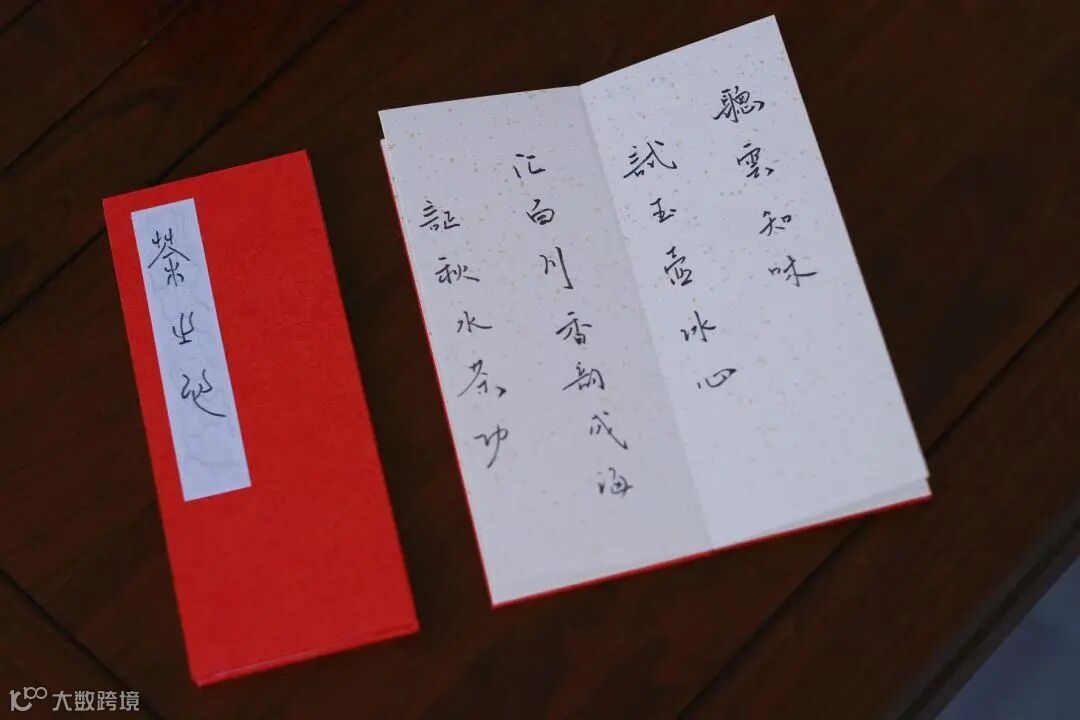 聽雲知味
試玉壺冰心
汇百川香韵成海
証秋水茶功
茶
大数跨境